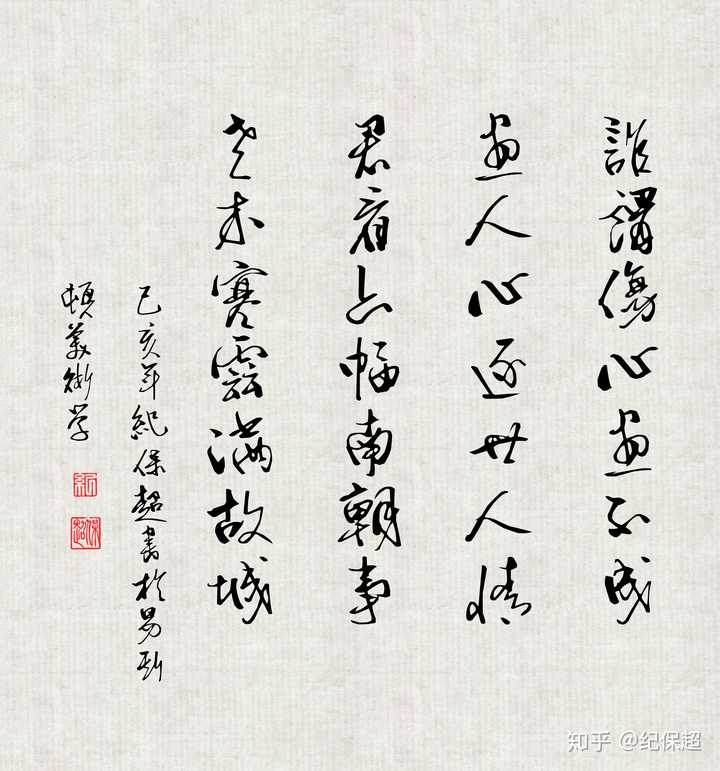 誰謂傷心畫不成
畫人心逐世人情
君看六幅南朝事
老木寒雲滿故城
己亥年紀保超書於易斯
頓美術学
知乎 @纪保超